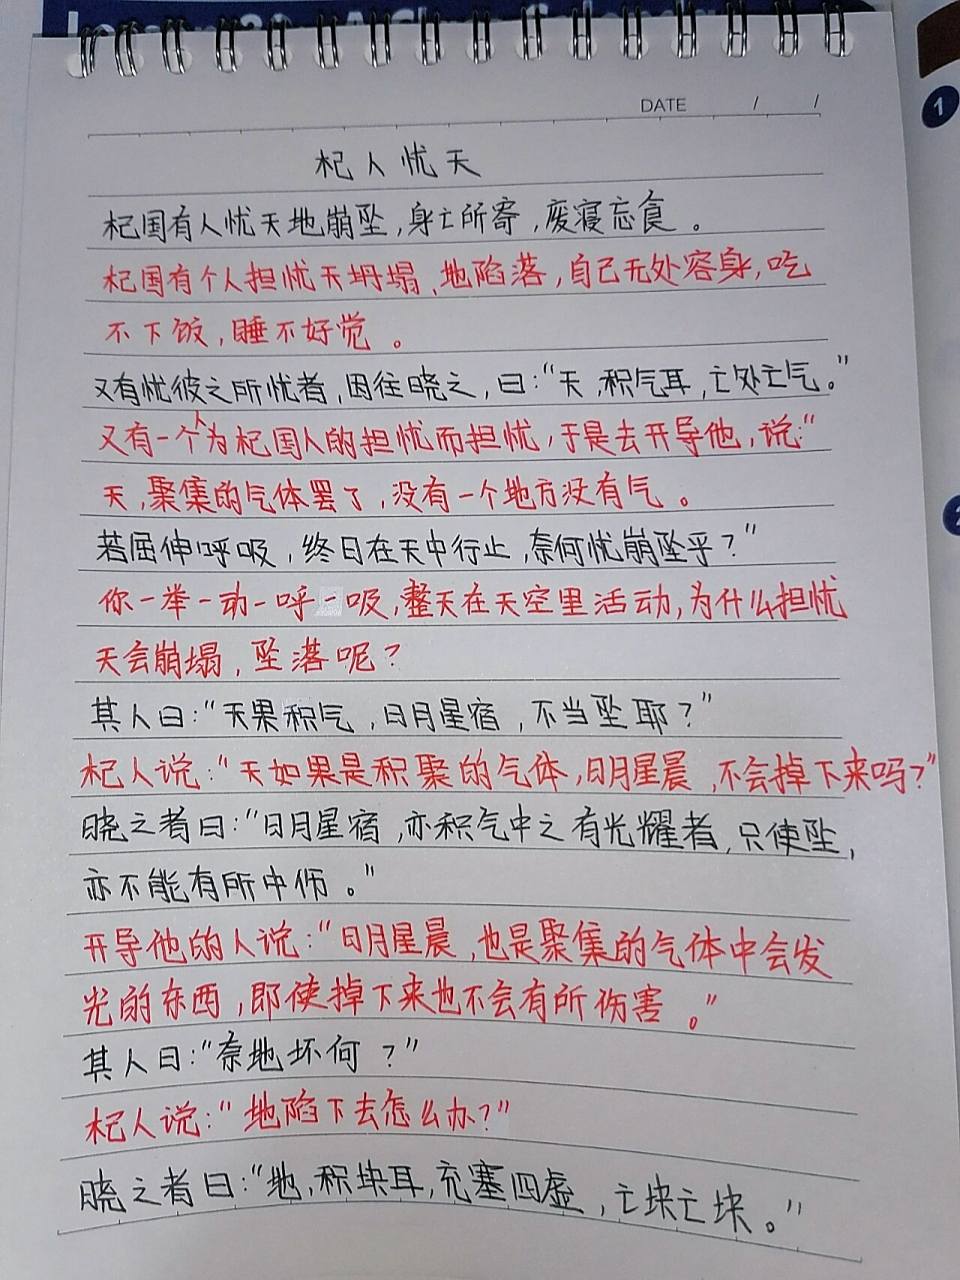 DATE / /
杞人忧天
杞国有人忧天地崩坠,身亡所寄,废寝忘食。
杞国有个人担忧天坍塌、地陷落,自己无处容身,吃
不下饭,睡不好觉。
又有忧彼之所忧者,因往晓之,曰:“天,积气耳,亡处亡气。”
又有一个人为杞国人的担忧而担忧,于是去开导他,说:“
天,聚集的气体罢了,没有一个地方没有气。
若屈伸呼吸,终日在天中行止,奈何忧崩坠乎?”
你一举一动一呼一吸,整天在天空里活动,为什么担忧
天会崩塌,坠落呢?
其人曰:“天果积气,日月星宿,不当坠耶?”
杞人说:“天如果是积聚的气体,日月星晨,不会掉下来吗?”
晓之者曰:“日月星宿,亦积气中之有光耀者,只使坠,
亦不能有所中伤。”
开导他的人说:“日月星晨,也是聚集的气体中会发
光的东西,即使掉下来也不会有所伤害。”
其人曰:“奈地坏何?”
杞人说:“地陷下去怎么办?”
晓之者曰:“地,积块耳,充塞四虚,亡块亡块。”
1